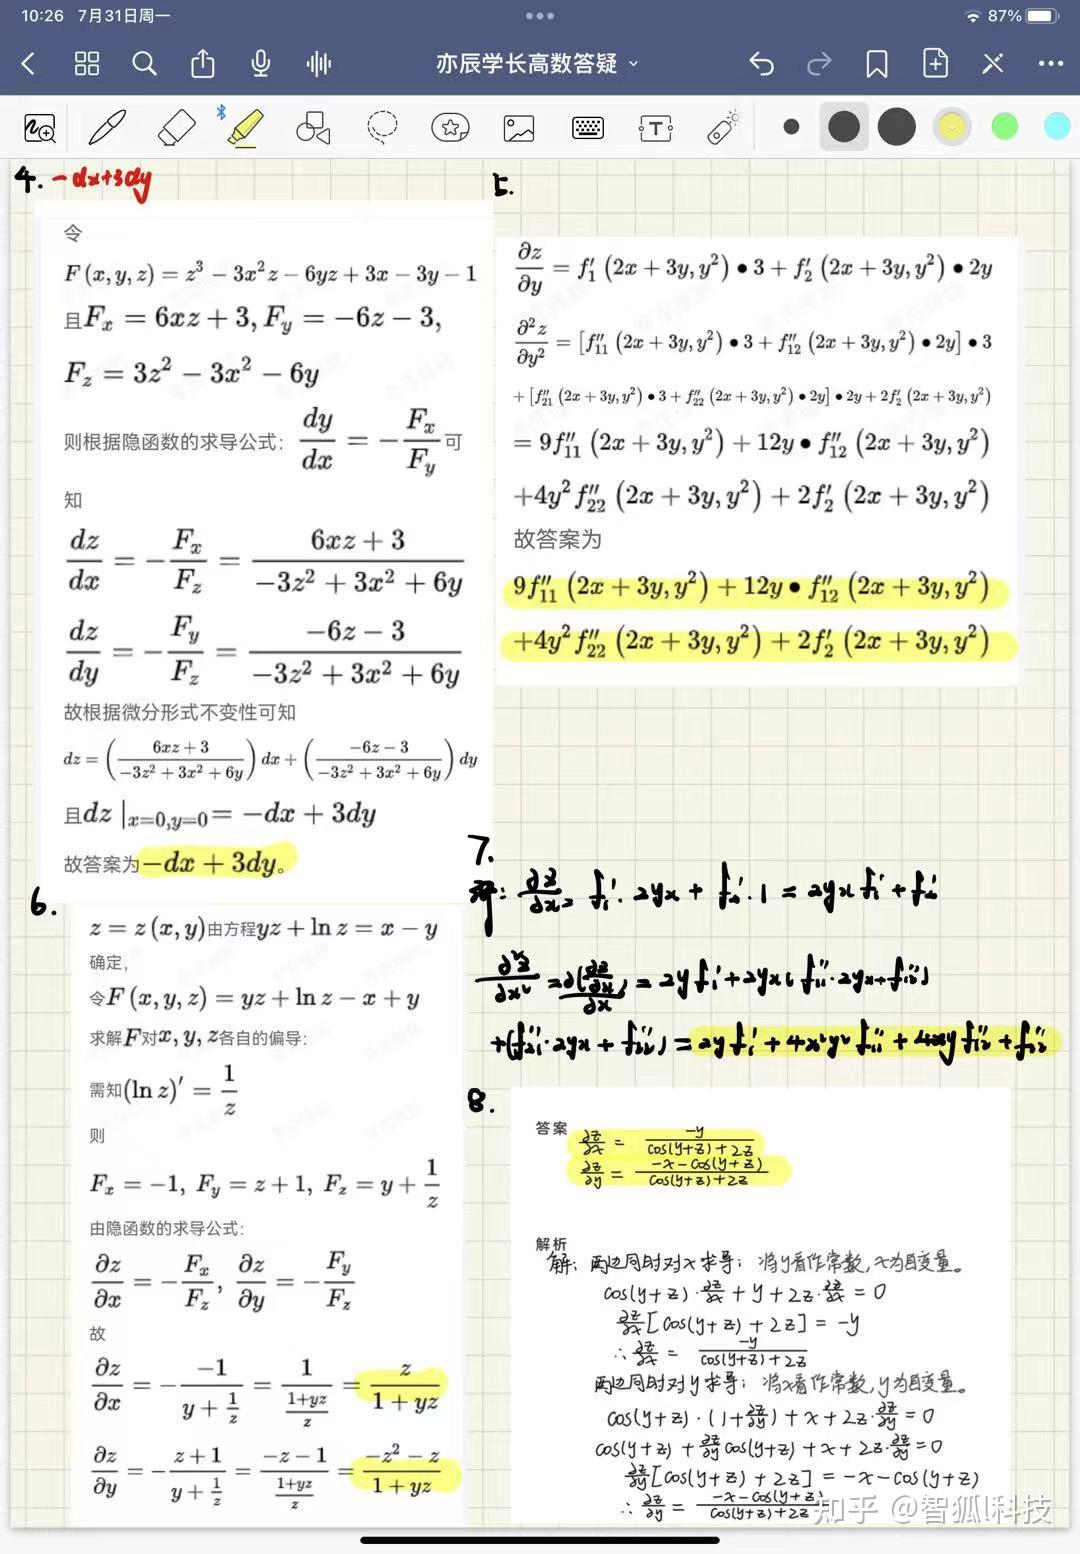 10:26 7月31日周一
87%
亦辰学长高数答疑
4. -dx+3dy
令
F(x,y,z) = z³ − 3x²z − 6yz + 3x − 3y − 1
且Fₓ = 6xz + 3, F_y = −6z − 3,
F_z = 3z² − 3x² − 6y
则根据隐函数的求导公式: dy/dx = −Fₓ/F_y 可
知
dz/dx = −Fₓ/F_z = (6xz + 3)/(−3z² + 3x² + 6y)
dz/dy = −F_y/F_z = (−6z − 3)/(−3z² + 3x² + 6y)
故根据微分形式不变性可知
dz = ((6xz + 3)/(−3z² + 3x² + 6y)) dx + ((−6z − 3)/(−3z² + 3x² + 6y)) dy
且dz |ₓ₌₀,y=0 = −dx + 3dy
故答案为−dx + 3dy。
5.
∂z/∂y = f₁′ (2x + 3y, y²) • 3 + f₂′ (2x + 3y, y²) • 2y
∂²z/∂y² = [f₁₁″ (2x + 3y, y²) • 3 + f₁₂″ (2x + 3y, y²) • 2y] • 3
+ [f₂₁″ (2x + 3y, y²) • 3 + f₂₂″ (2x + 3y, y²) • 2y] • 2y + 2f₂′ (2x + 3y, y²)
= 9f₁₁″ (2x + 3y, y²) + 12y • f₁₂″ (2x + 3y, y²)
+4y² f₂₂″ (2x + 3y, y²) + 2f₂′ (2x + 3y, y²)
故答案为
9f₁₁″ (2x + 3y, y²) + 12y • f₁₂″ (2x + 3y, y²)
+4y² f₂₂″ (2x + 3y, y²) + 2f₂′ (2x + 3y, y²)
6.
z = z(x, y)由方程yz + ln z = x − y
确定,
令F(x, y, z) = yz + ln z − x + y
求解F对x, y, z各自的偏导:
需知(ln z)′ = 1/z
则
Fₓ = −1, F_y = z + 1, F_z = y + 1/z
由隐函数的求导公式:
∂z/∂x = −Fₓ/F_z, ∂z/∂y = −F_y/F_z
故
∂z/∂x = −(−1)/(y + 1/z) = 1/((1+yz)/z) = z/(1 + yz)
∂z/∂y = −(z + 1)/(y + 1/z) = (−z − 1)/((1+yz)/z) = (−z² − z)/(1 + yz)
7.
解: ∂z/∂x = f₁′·2yx + f₂′·1 = 2yxf₁′ + f₂′
∂²z/∂x² = ∂(∂z/∂x)/∂x = 2yf₁′ + 2yx(f₁₁″·2yx + f₁₂″)
+(f₂₁″·2yx + f₂₂″) = 2yf₁′ + 4x²y²f₁₁″ + 4xyf₁₂″ + f₂₂″
8.
答案
∂z/∂x = −y/(cos(y+z)+2z)
∂z/∂y = (−x−cos(y+z))/(cos(y+z)+2z)
解析
解: 两边同时对x求导: 将y看作常数, x为自变量。
cos(y+z)·∂z/∂x + y + 2z·∂z/∂x = 0
∂z/∂x[cos(y+z) + 2z] = −y
∴ ∂z/∂x = −y/(cos(y+z)+2z)
两边同时对y求导: 将x看作常数, y为自变量。
cos(y+z)·(1+∂z/∂y) + x + 2z·∂z/∂y = 0
cos(y+z) + ∂z/∂y cos(y+z) + x + 2z·∂z/∂y = 0
∂z/∂y[cos(y+z) + 2z] = −x−cos(y+z)
∴ ∂z/∂y = (−x−cos(y+z))/(cos(y+z)+2z)
知乎 @智狐l科技